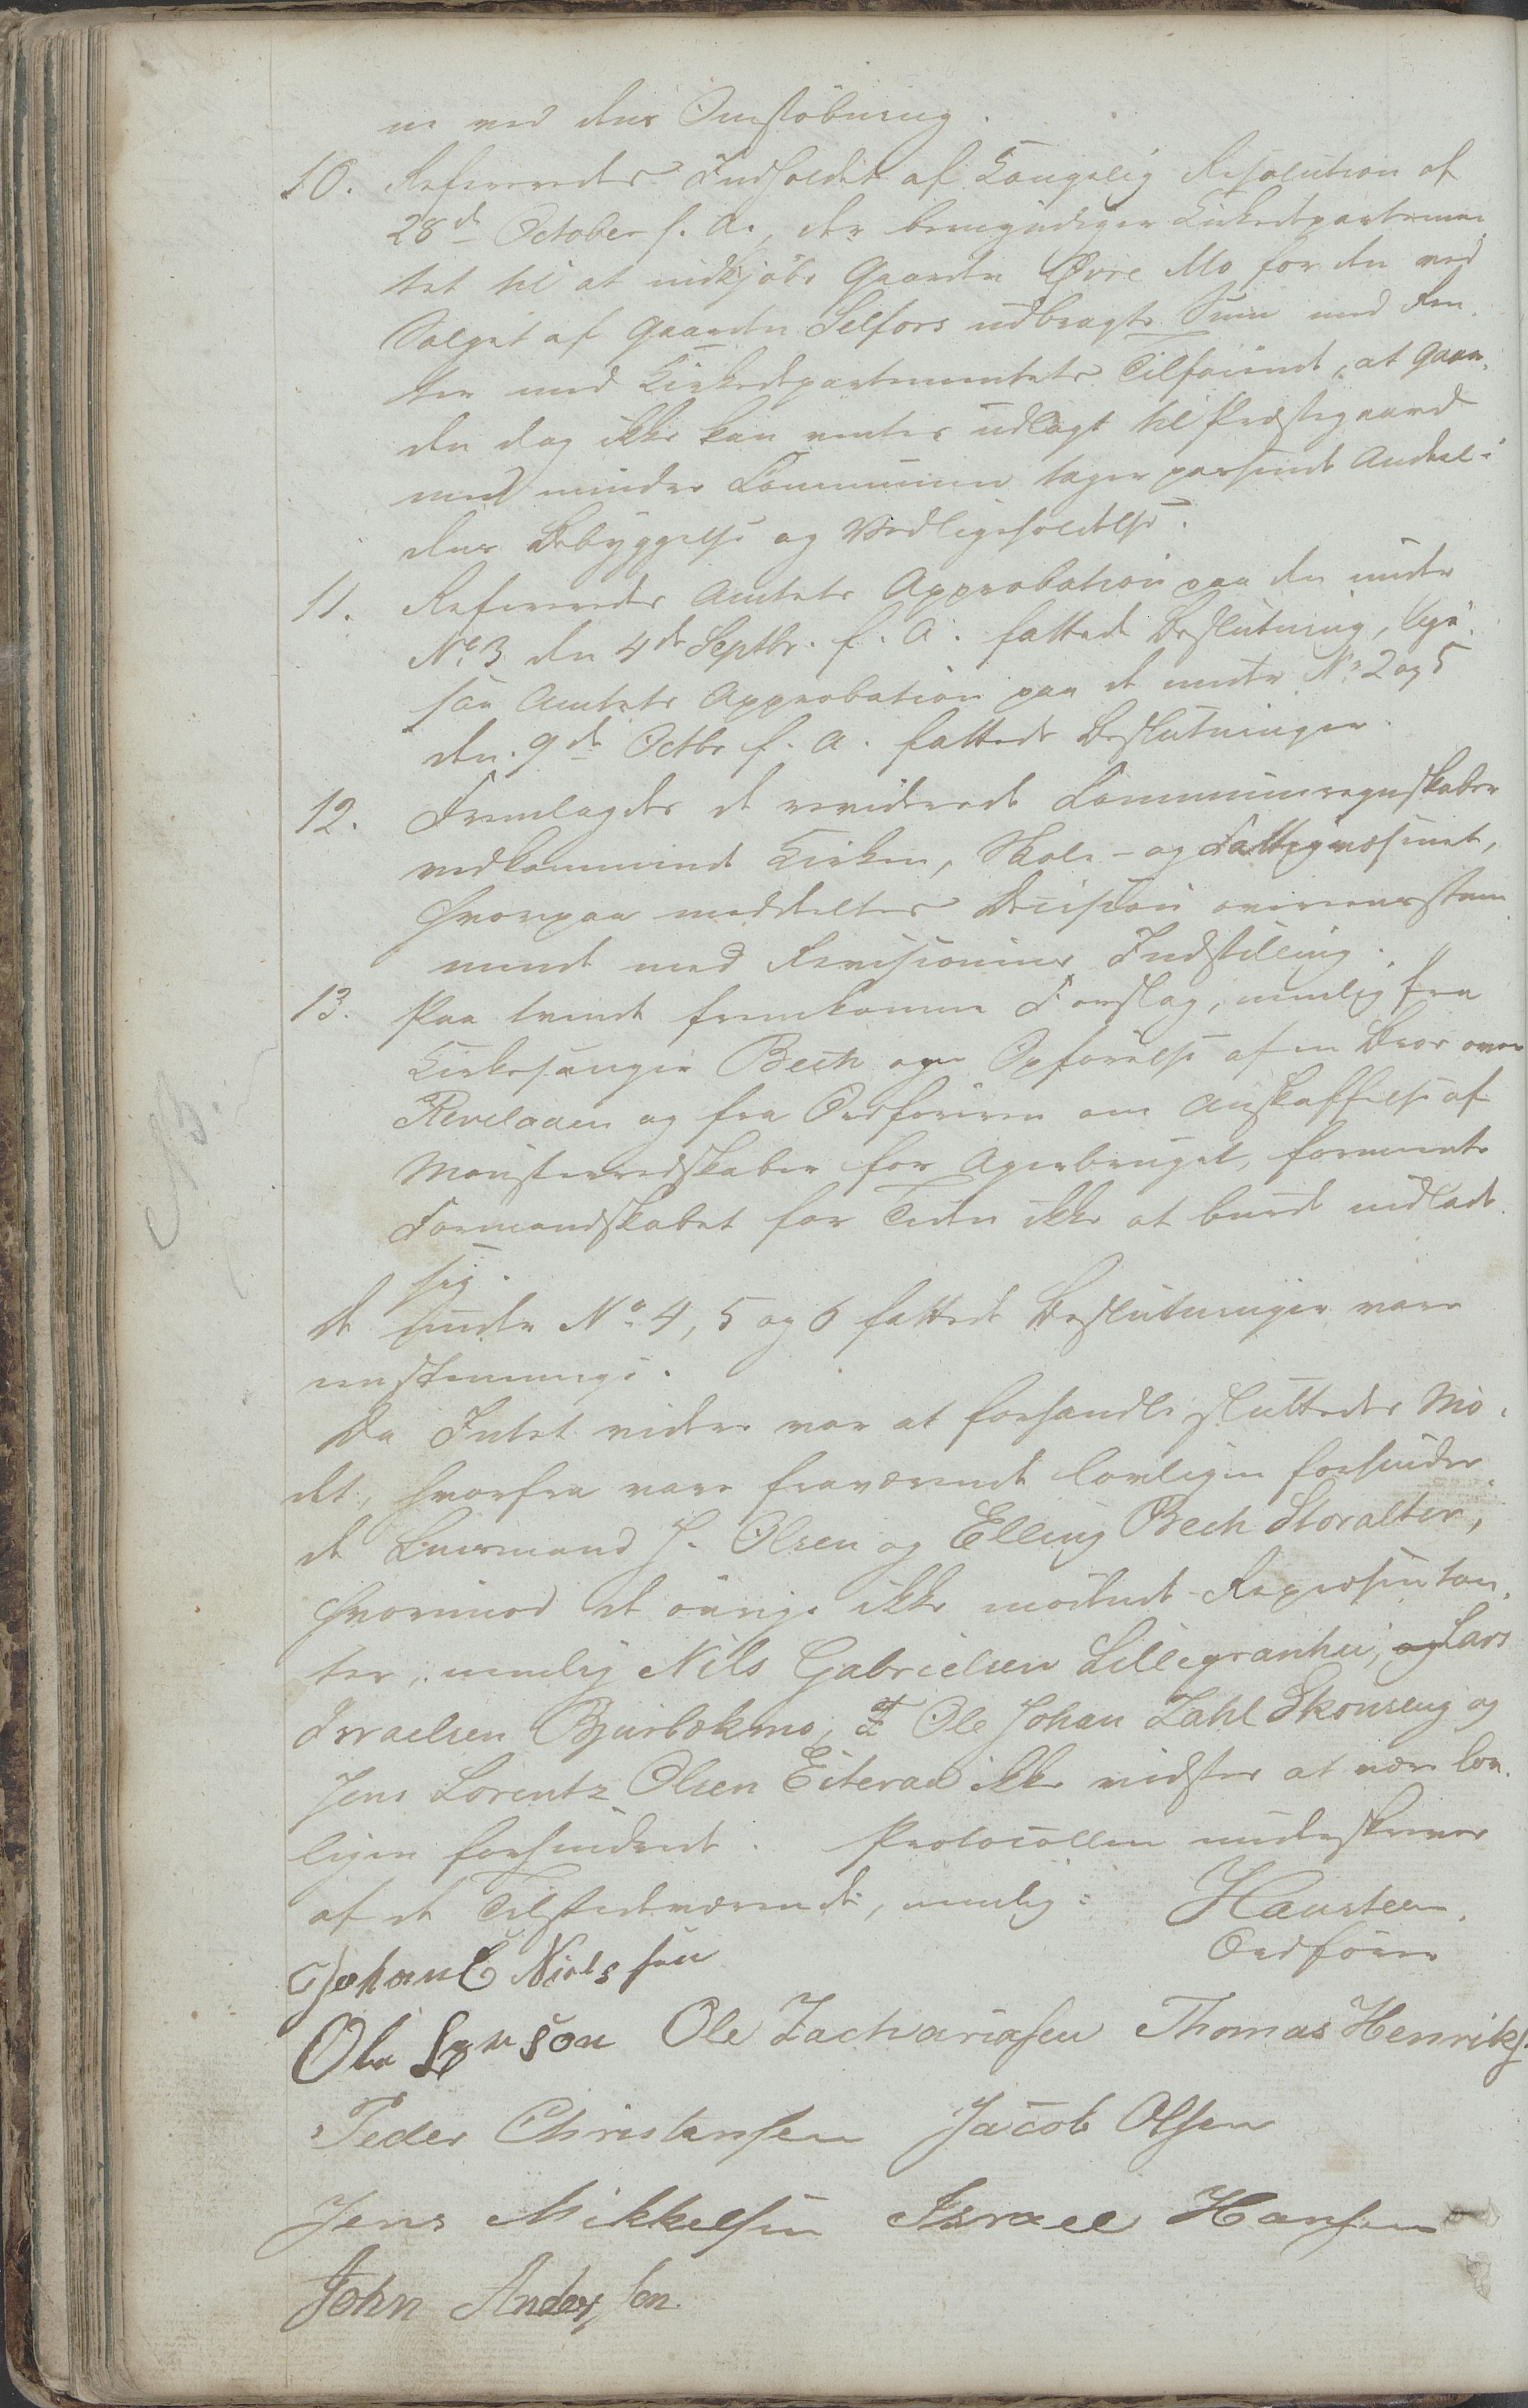 ne ved dens Omstøbning.
10. Refereredes Indholdet af Kongelig Resolution af
28de October f. A., der bemyndiger Kirkedepartemen
tet til at indkjøbe Gaarden Øvre Mo for den ved
Salget af Gaarden Selfors udbragte Sum med Ren
ter med Kirkedepartementets Tilføiende, at Gaar
den dog ikke kan ventes udlagt til Præstegaard
med mindre Communen tager passende Andeel i
dens Bebyggelse og Vedligeholdelse.
11. Refereredes Amtets Approbation paa den under
No 3 den 4de Septbr. f. A. fattede Beslutning, lige
saa Amtets Approbation paa de under No 2 og 5
den 9de Octbr f. A. fattede Beslutninger.
12. Fremlagdes de reviderede Communeregnskaber
vedkommende Kirken, Skole- og Fattigvæsenet,
hvorpaa meddeltes Decision overeensstem
mende med Revisionens Indstilling.
13. Paa tvende fremkomne Forslag, nemlig fra
Kirkesanger Bech om Opførelse af en Bro over
Revelaaen og fra Ordføreren om Anskaffelse af
Mønsterredskaber for Agerbruget, formeente
Formandskabet for Tiden ikke at burde indlade
sig.
De under No 4, 5 og 6 fattede Beslutninger vare
eenstemmige.
Da Intet videre var at forhandle sluttedes Mø
det, hvorfra vare fraværende lovligen forhindre
de Lensmand J. Olsen og Elling Bech Storalter,
hvorimod de øvrige ikke mødende Repræsentan
ter, nemlig Nils Gabrielsen Lillegranhei, og Lars
Israelsen Bjurbækmo, Ole Johan Zahl Skonseng og
Jens Lorentz Olsen Eiteraa ikke vidstes at være lov
ligen forhindrede. Protocollen underskrives
af de Tilstedeværende, nemlig: Hansteen.
Ordfører
Johan C Nielssen
Ole Larson Ole Zachariasen Thomas Henriks.
Peder Christensen Jacob Olsen
Jens Mikkelsen Israel Hansen
John Anderson.